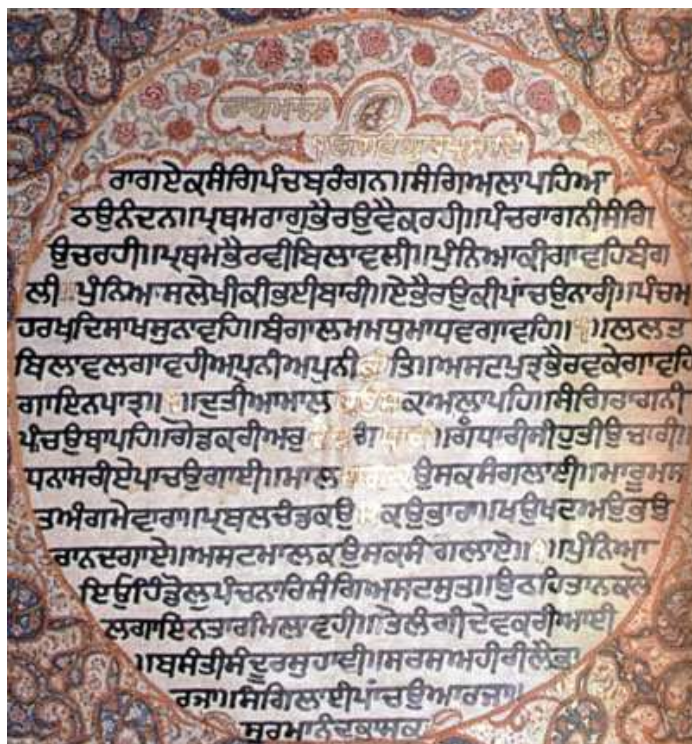 ਰਾਗਮਾਲਾ
ਰਾਗਏਕਸੰਗਿਪੰਚਬਰੰਗਨ॥ਸੰਗਿਅਲਾਪਹਿਆ
ਠਉਨੰਦਨ॥ਪ੍ਰਥਮਰਾਗੁਭੈਰਉਵੈਕਰਹੀ॥ਪੰਚਰਾਗਨੀਸੰਗਿ
ਉਚਰਹੀ॥ਪ੍ਰਥਮਭੈਰਵੀਬਿਲਾਵਲੀ॥ਪੁੰਨਿਆਕੀਗਾਵਹਿਬੰਗ
ਲੀ॥ਪੁੰਨਿਆਸਲੇਖੀਕੀਭਈਬਾਰੀ॥ਏਭੈਰਉਕੀਪਾਂਚਉਨਾਰੀ॥ਪੰਚਮ
ਹਰਖਦਿਸਾਖਸੁਨਾਵਹਿ॥ਬੰਗਾਲਮਮਧੁਮਾਧਵਗਾਵਹਿ॥੧॥ਲਲਤ
ਬਿਲਾਵਲਗਾਵਹੀਅਪੁਨੀਅਪੁਨੀਭਾਂਤਿ॥ਅਸਟਪੁਤ੍ਰਭੈਰਵਕੇਗਾਵਹਿ
ਗਾਇਨਪਾਤ੍ਰ॥੧॥ਦੁਤੀਆਮਾਲਕਉਸਕਅਲਾਪਹਿ॥ਸੰਗਿਰਾਗਨੀ
ਪੰਚਉਥਾਪਹਿ॥ਗੋਡਕਰੀਅਰੁ ਗੰਧਾਰੀ॥ਗੰਧਾਰੀਸੀਹੁਤੀਉਚਾਰੀ॥
ਧਨਾਸਰੀਏਪਾਚਉਗਾਈ॥ਮਾਲ ਉਸਕਸੰਗਲਾਈ॥ਮਾਰੂਮਸ
ਤਅੰਗਮੇਵਾਰਾ॥ਪ੍ਰਬਲਚੰਡਕਉ ਕਉਭਾਰਾ॥ਖਉਖਟਅਉਭਉ
ਰਾਨਦਗਾਏ॥ਅਸਟਮਾਲਕਉਸਕਸੰਗਲਾਏ॥੧॥ਪੁੰਨਿਆ
ਇਓਹਿੰਡੋਲੁਪੰਚਨਾਰਿਸੰਗਿਅਸਟਸੁਤ॥ਉਠਹਿਤਾਨਕਲੋ
ਲਗਾਇਨਤਾਰਮਿਲਾਵਹੀ॥ਤੇਲੰਗੀਦੇਵਕਰੀਆਈ
॥ਬਸੰਤੀਸੰਦੂਰਸੁਹਾਈ॥ਸਰਸਅਹੀਰੀਲੈਭਾ
ਰਜਾ॥ਸੰਗਿਲਾਈਪਾਂਚਉਆਰਜਾ॥
ਸੁਰਮਾਨੰਦਭਾਸਕ